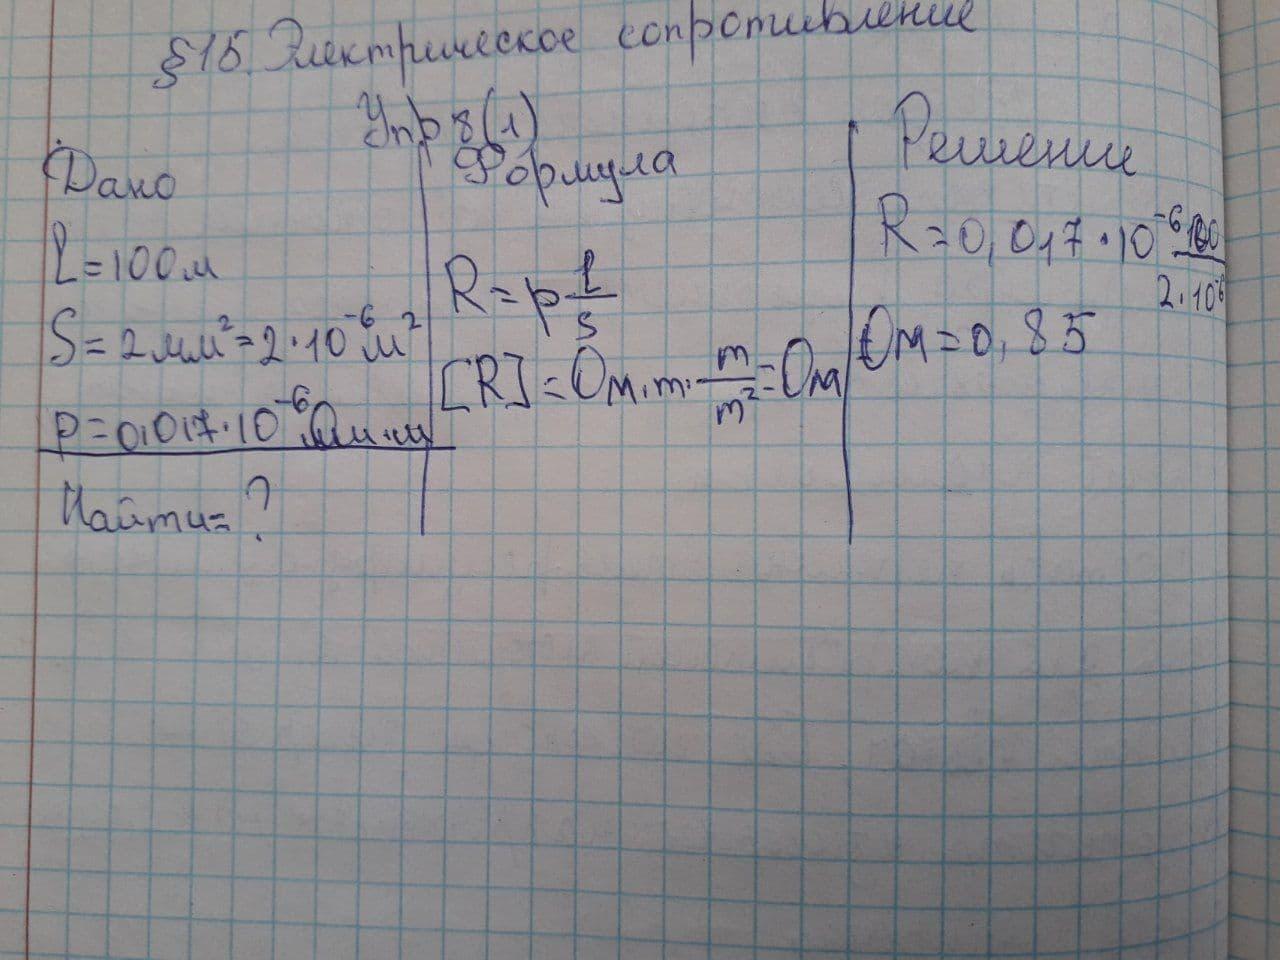 §15. Электрическое сопротивление
Упр 8(1)
Дано
l=100м
S=2мм²=2·10⁻⁶м²
p=0,017·10⁻⁶Ом·м
Найти=?
Формула
R=p l/s
[R]=Ом·m·m/m²=Ом
Решение
R=0,017·10⁻⁶ 100/2·10⁻⁶
Ом=0,85